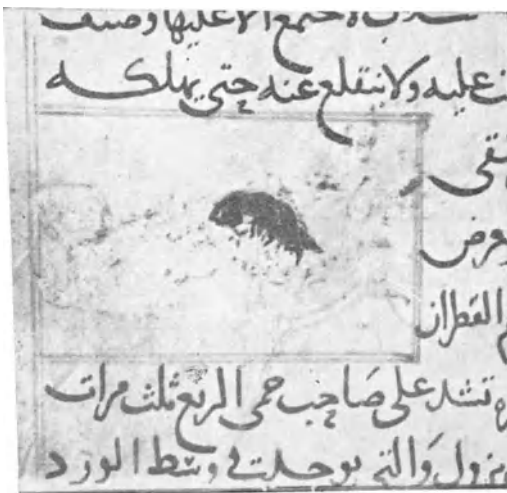 اجتمع الا عليها وصنف
عليه ولا ينقلع عنه حتى يهلكه
القطران
تشد على صاحب حمى الربع ثلث مرات
يزول والتى توجد في وسط الورد